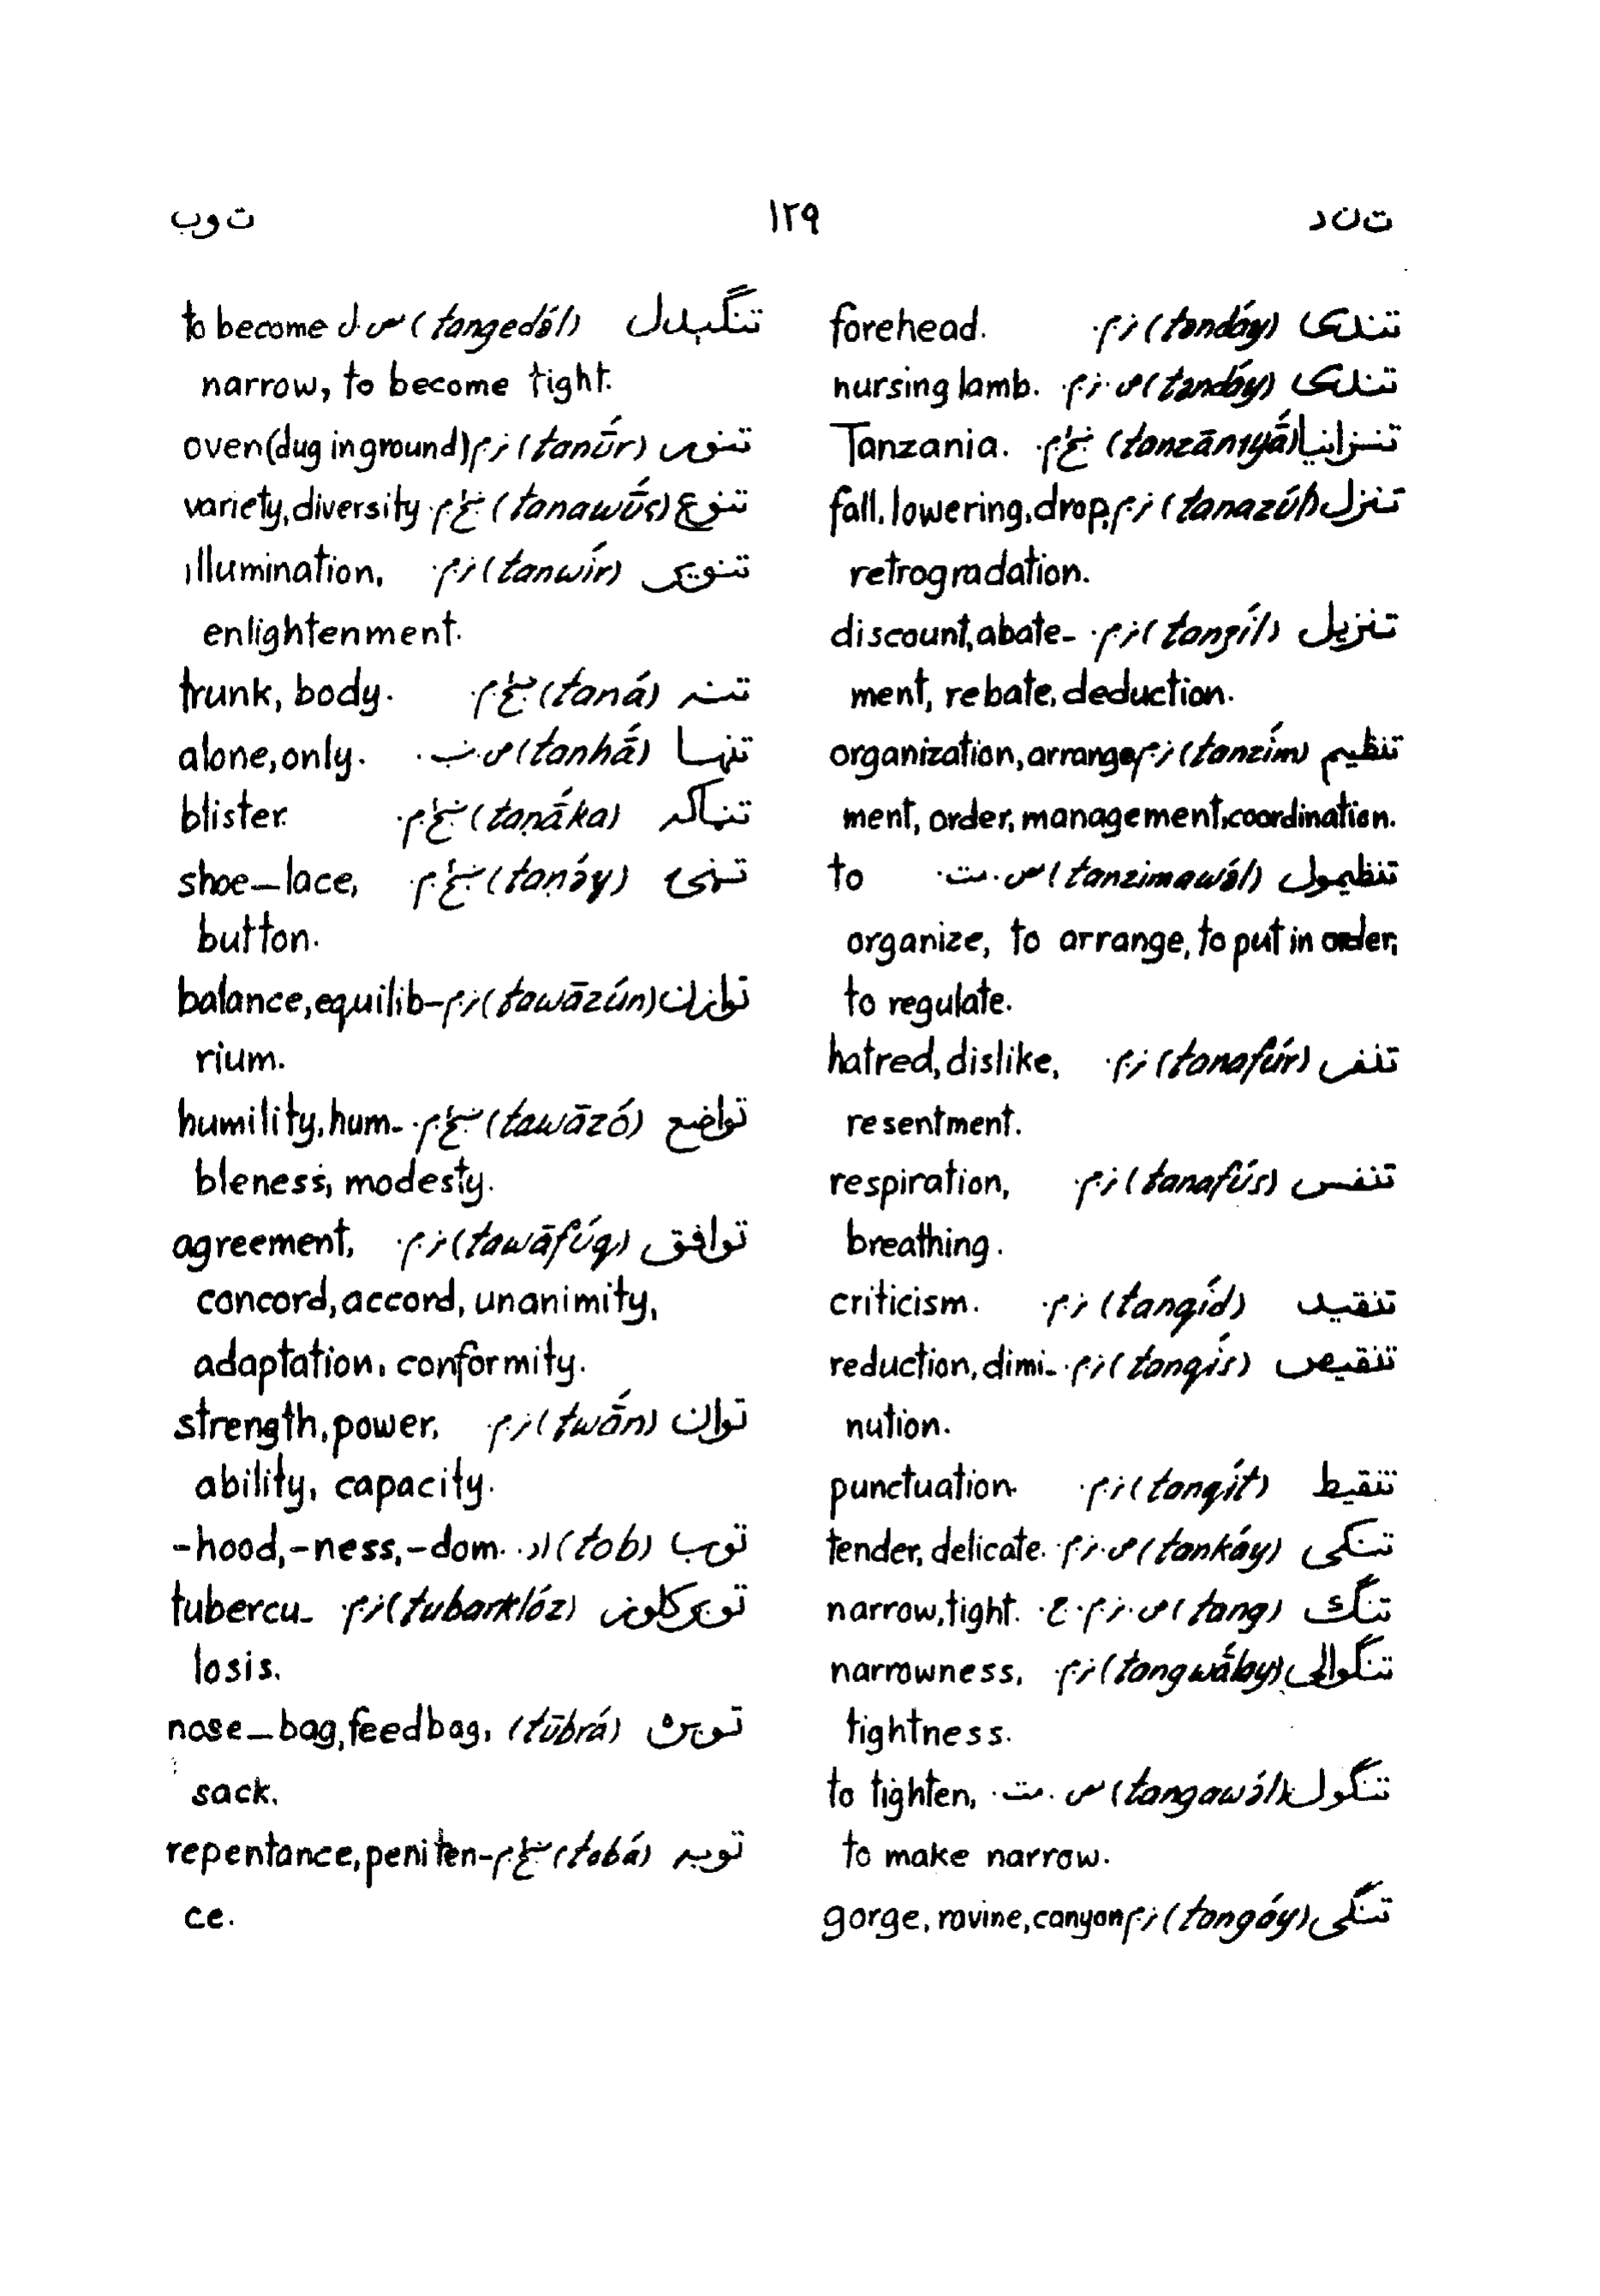 ت ن د ١٢٩ ت و ب
تندی (tandáy) ن.م. forehead.
تندی (tandáy) ص.ن.م. nursing lamb.
تنزانیا (tanzāniyā́) ښځ.م. Tanzania.
تنزل (tanazúl) ن.م. fall, lowering, drop,
retrogradation.
تنزیل (tanzíl) ن.م. discount, abate-
ment, rebate, deduction.
تنظیم (tanzím) ن.م. organization, arrange-
ment, order, management, coordination.
تنظیمول (tanzimawə́l) مص.مت. to
organize, to arrange, to put in order,
to regulate.
تنفر (tanafúr) ن.م. hatred, dislike,
resentment.
تنفس (tanafús) ن.م. respiration,
breathing.
تنقید (tanqíd) ن.م. criticism.
تنقیص (tanqís) ن.م. reduction, dimi-
nution.
تنقیط (tanqít) ن.م. punctuation.
تنکی (tankáy) ص.ن.م. tender, delicate.
تنگ (tang) ص.ن.م.ج. narrow, tight.
تنگوالی (tangwā́lay) ن.م. narrowness,
tightness.
تنگول (tangawə́l) مص.مت. to tighten,
to make narrow.
تنگی (tangáy) ن.م. gorge, ravine, canyon
تنگېدل (tangedə́l) مص.ل. to become
narrow, to become tight.
تنور (tanū́r) ن.م. oven (dug in ground)
تنوع (tanawū́ʕ) ښځ.م. variety, diversity
تنویر (tanwír) ن.م. illumination,
enlightenment.
تنه (taná) ښځ.م. trunk, body.
تنها (tanhā́) ص.ب. alone, only.
تڼاکه (taṇā́ka) ښځ.م. blister.
تڼۍ (taṇə́y) ښځ.م. shoe-lace,
button.
توازن (tawāzún) ن.م. balance, equilib-
rium.
تواضع (tawāzó) ښځ.م. humility, hum-
bleness, modesty.
توافق (tawāfúq) ن.م. agreement,
concord, accord, unanimity,
adaptation, conformity.
توان (twā́n) ن.م. strength, power,
ability, capacity.
توب (tob) اد. -hood, -ness, -dom.
توبرکلوز (tubarklóz) ن.م. tubercu-
losis.
توبره (tūbrá) nose-bag, feedbag,
sack.
توبه (tobá) ښځ.م. repentance, peniten-
ce.